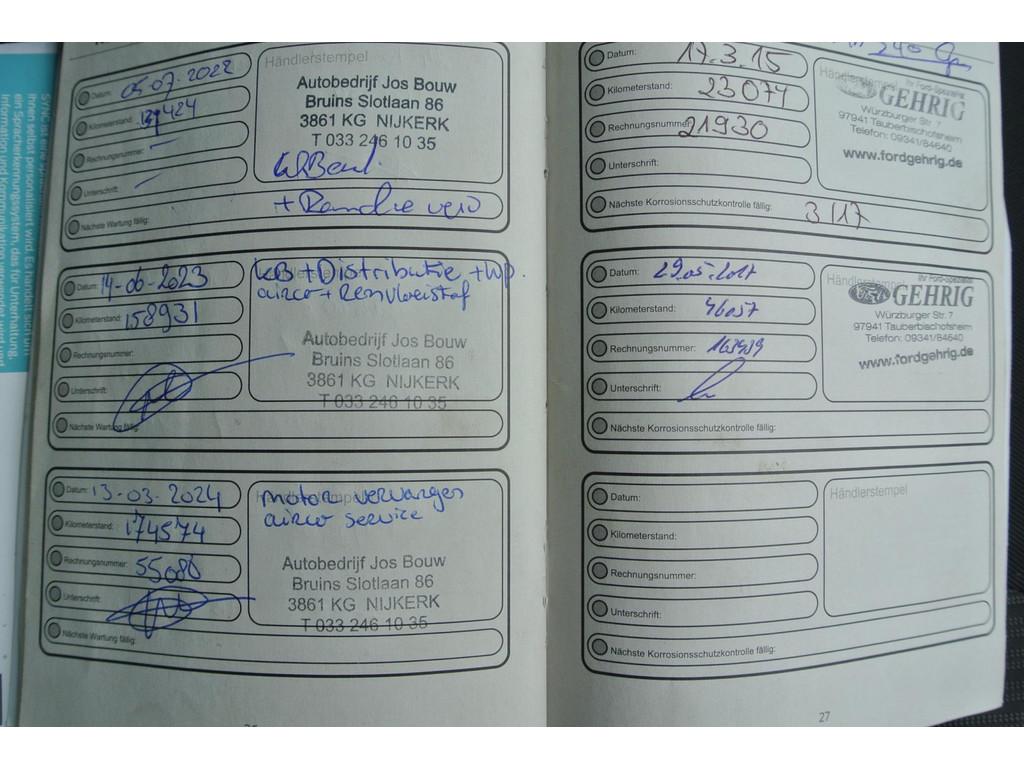 SYNC ist eine
Ihnen selbst personalisiert wird. Es handelt sich um
ein Spracherkennungssystem, das für Unterhaltung,
Information und Kommunikation
Datum: 05-07-2022
Kilometerstand:
Rechnungsnummer: —
Unterschrift: —
Nächste Wartung fällig:
Händlerstempel
Autobedrijf Jos Bouw
Bruins Slotlaan 86
3861 KG NIJKERK
T 033 246 10 35
Datum: 14-06-2023
Kilometerstand: 158931
Rechnungsnummer:
Unterschrift:
Nächste Wartung fällig:
KB + Distributie + wp.
airco + Remvloeistof
Autobedrijf Jos Bouw
Bruins Slotlaan 86
3861 KG NIJKERK
T 033 246 10 35
Datum: 13-03-2024
Kilometerstand: 174574
Rechnungsnummer: 55086
Unterschrift:
Nächste Wartung fällig:
Händlerstempel
motor vervangen
airco service
Autobedrijf Jos Bouw
Bruins Slotlaan 86
3861 KG NIJKERK
T 033 246 10 35
Datum: 17.3.15
Kilometerstand: 23077
Rechnungsnummer: 21930
Unterschrift:
Nächste Korrosionsschutzkontrolle fällig: 3/17
Händlerstempel
Ihr Ford-Spezialist
GEHRIG
Würzburger Str. 7
97941 Tauberbischofsheim
Telefon: 09341/84640
www.fordgehrig.de
Datum: 29.05.2017
Kilometerstand: 46057
Rechnungsnummer: 163939
Unterschrift:
Nächste Korrosionsschutzkontrolle fällig:
Ihr Ford-Spezialist
Ford GEHRIG
Würzburger Str. 7
97941 Tauberbischofsheim
Telefon: 09341/84640
www.fordgehrig.de
Datum:
Kilometerstand:
Rechnungsnummer:
Unterschrift:
Nächste Korrosionsschutzkontrolle fällig:
Händlerstempel
27